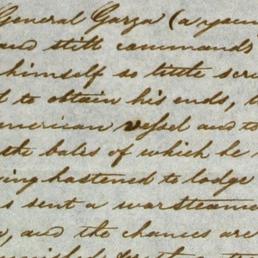 General Garza (a young
and still commands
himself so little scru
to obtain his ends, t
American vessel and to
the bales of which he
ing hastened to lodge
s sent a war steamer
, and the chances are